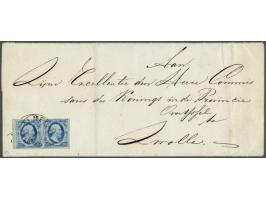 Aan
Zijne Excellentie den Heere Commis
saris des Konings in de Provincie
Overijssel
te
Zwolle